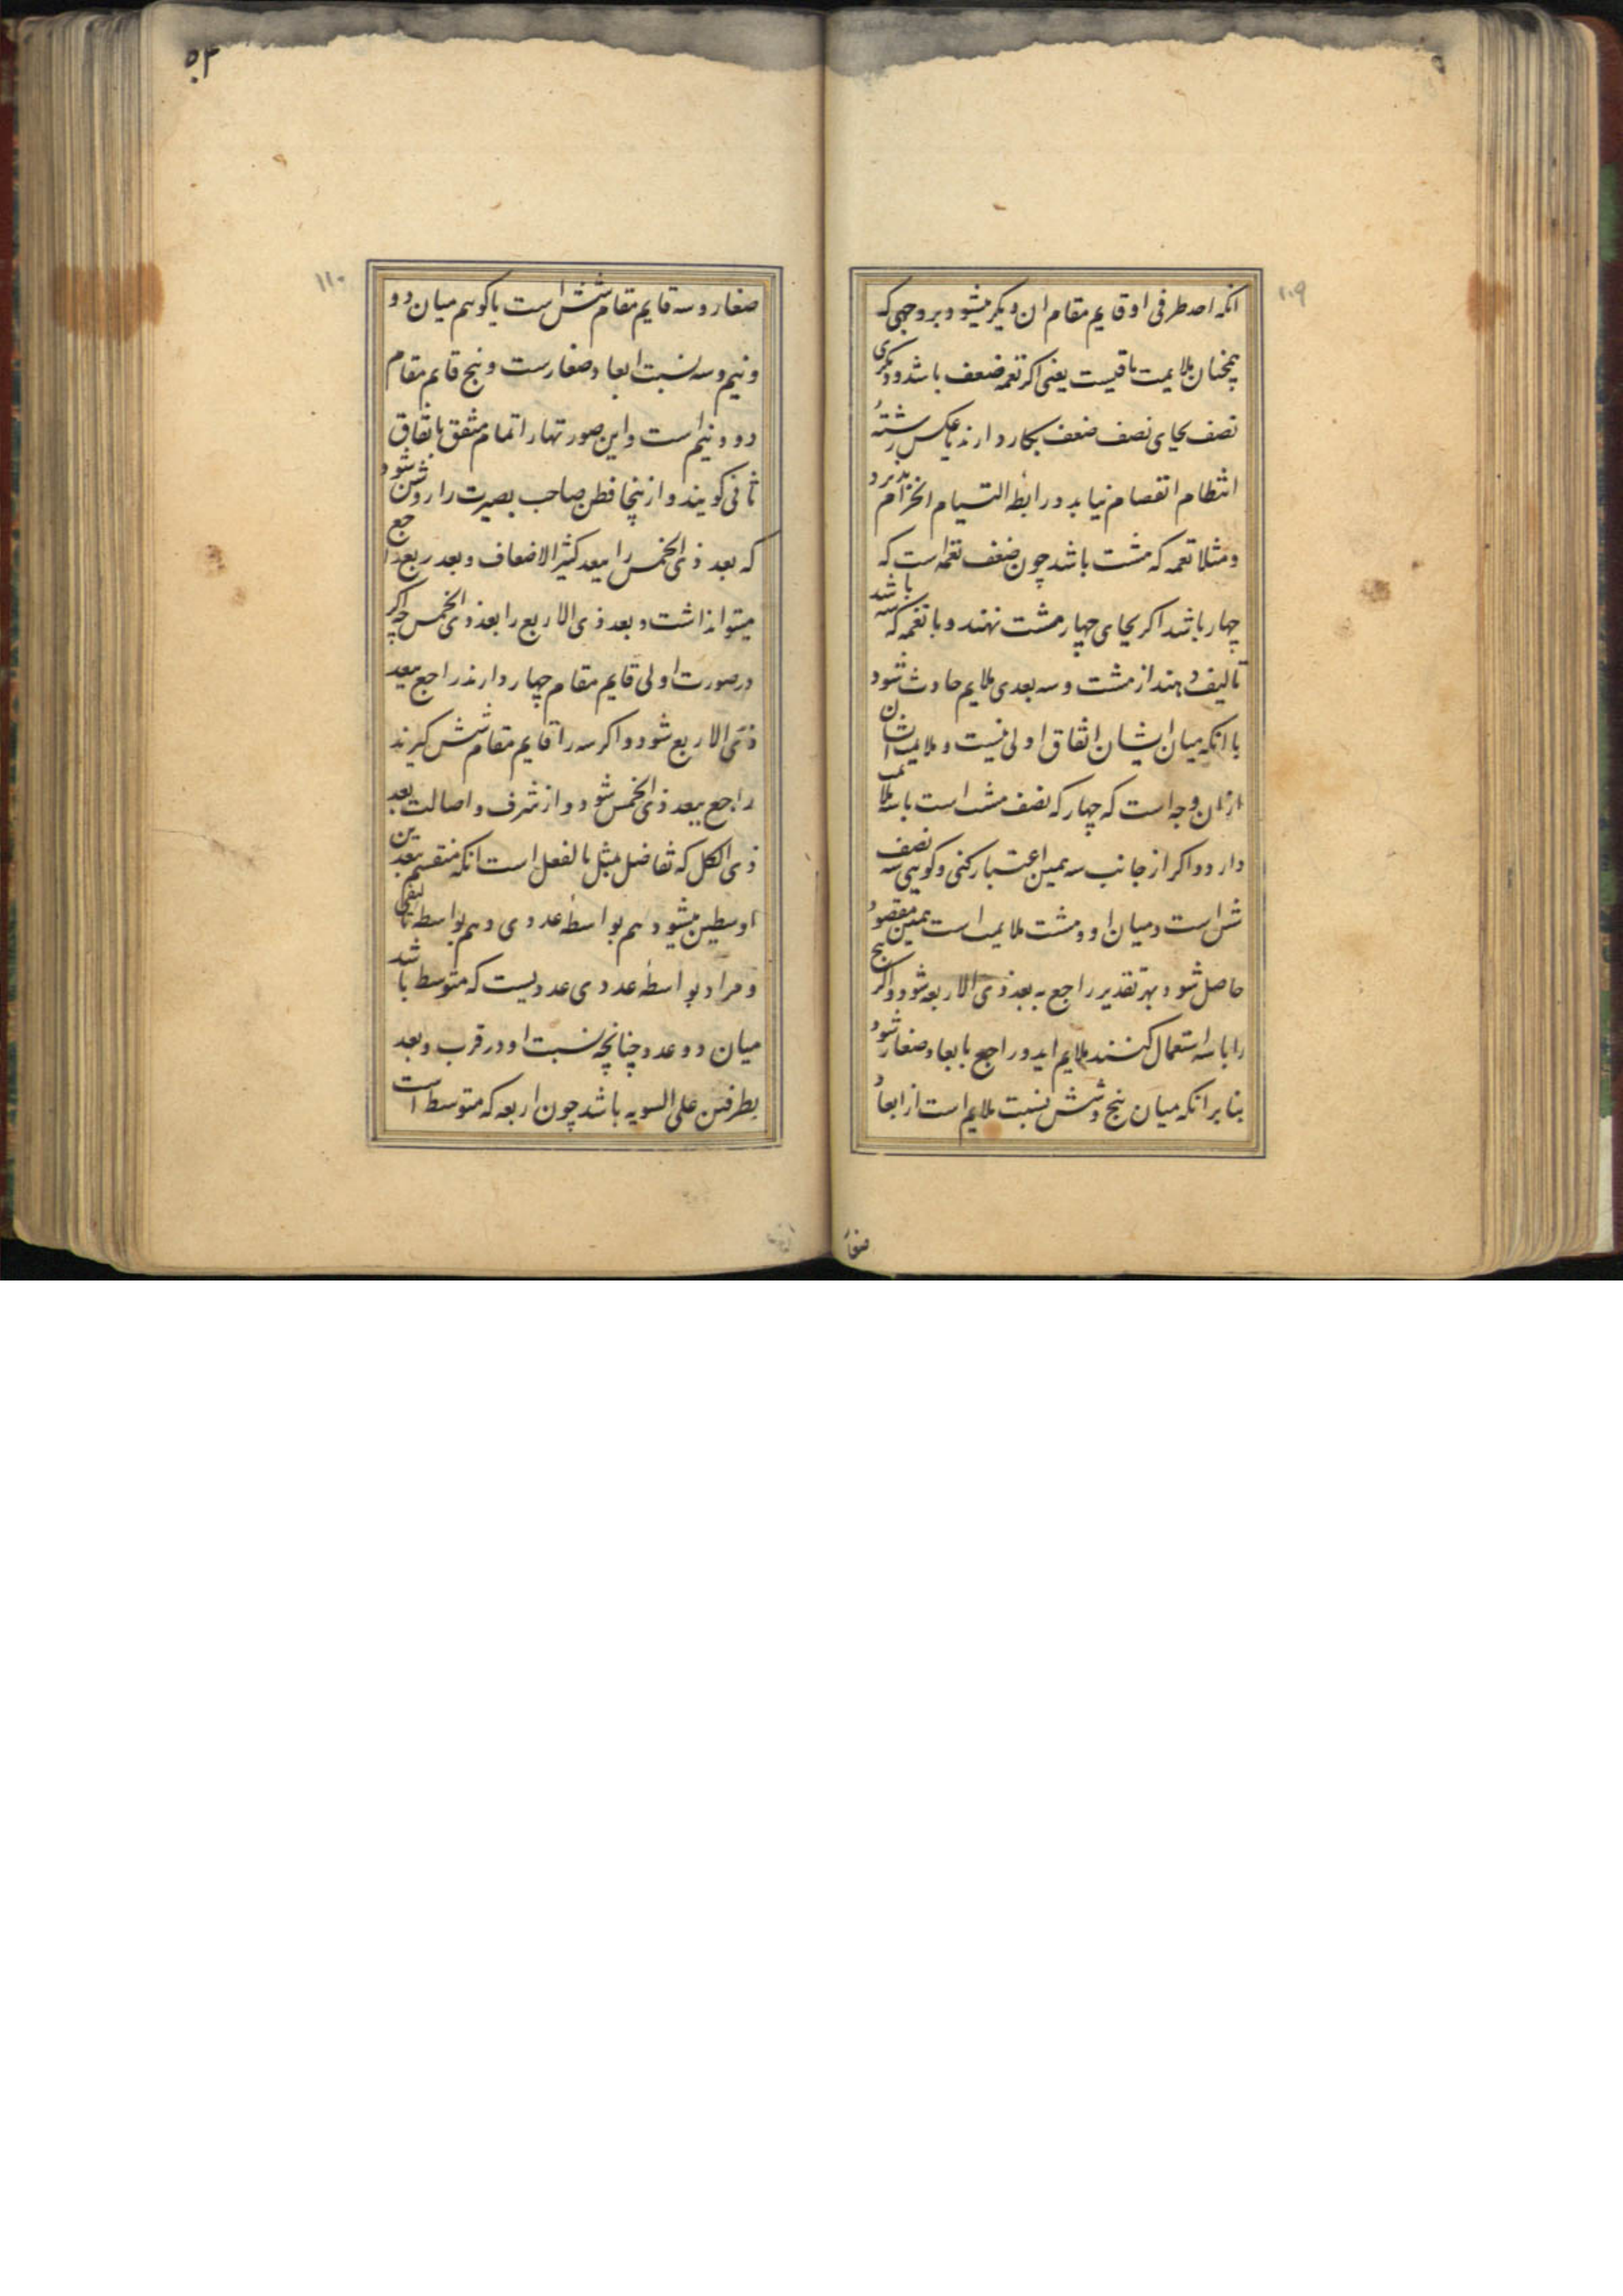 ۱۰۹
انکه احد طرفی او قایم مقام ان دیگر میشود بر وجهی که
همچنان ملایمت باقیست یعنی اکر نغمه ضعف باشد و دیگری
نصف بجای نصف ضعف بکار دارند یا عکس رشته
انتظام انفصام نیابد و رابطه التیام انخرام پذیرد
و مثلا نغمه که هشت باشد چون ضعف نغمه است که
چهار باشد اکر بجای چهار هشت نهند و با نغمه که سه باشد
تالیف دهند از هشت و سه بعدی ملایم حادث شود
با انکه میان ایشان اتفاق اولی نیست و ملایمت ایشان
ازان وجه است که چهار که نصف هشت است با سه ملایمت
دارد و اکر از جانب سه همین اعتبار کنی و کویی سه نصف
شش است و میان او و هشت ملایمت است همین مقصود
حاصل شود و بهر تقدیر راجع به بعد ذی الاربعه شود و اکر پنج
را با سه استعمال کنند ملایم اید و راجع بابعاد صغار شود
بنا بر انکه میان پنج و شش نسبت ملایم است از ابعاد
صغار
۵۴
۱۱۰
صغار و سه قایم مقام شش است یا کوییم میان دو
و نیم و سه نسبت ابعاد صغارست و پنج قایم مقام
دو و نیم است و این صورتها را تمام متفق باتفاق
ثانی کویند و ازینجا فطن صاحب بصیرت را روشن شود
که بعد ذی الخمس را ببعد کثیر الاضعاف و بعد ربع راجع
میتواند داشت و بعد ذی الاربع را بعد ذی الخمس چه اکر
در صورت اولی قایم مقام چهار دارند راجع ببعد
ذی الاربع شود و اکر سه را قایم مقام شش کیرند
راجع ببعد ذی الخمس شود و از شرف و اصالت بعد
ذی الکل که تفاضل بمثل بالفعل است انکه منقسم ببعدین
اوسطین میشود هم بواسطه عددی و هم بواسطه تالیفی
و مراد بواسطه عددی عددیست که متوسط باشد
میان دو عدد چنانچه نسبت او در قرب و بعد
بطرفین علی السویه باشد چون اربعه که متوسط است